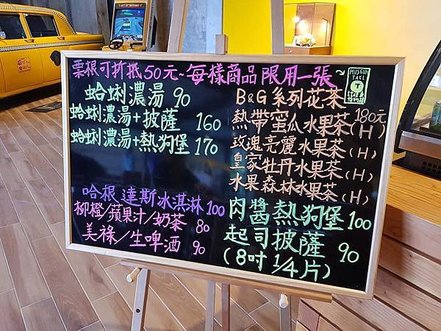 票根可折抵50元~每樣商品限用一張
蛤蜊濃湯 90
蛤蜊濃湯+披薩 160
蛤蜊濃湯+熱狗堡 170
哈根達斯冰淇淋 100
柳橙/蘋果汁/奶茶 80
美祿/生啤酒 90
B&G系列花茶
180元
熱帶蜜瓜水果茶(H)
玫瑰亮麗水果茶(H)
皇家牡丹水果茶(H)
水果森林水果茶(H)
肉醬熱狗堡 100
起司披薩 90
(8吋 1/4片)